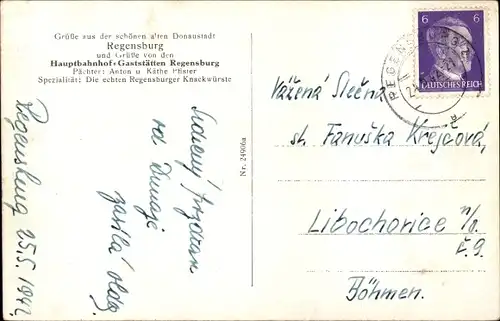 Grüße aus der schönen alten Donaustadt
Regensburg
und Grüße von den
Hauptbahnhof-Gaststätten Regensburg
Pächter: Anton u. Käthe Pfister
Spezialität: Die echten Regensburger Knackwürste
Regensburg 25.5.1942.
Srdečný pozdrav
od Dunaje
zasílá
Nr. 24906a
6 6
DEUTSCHES REICH
REGENSBURG
Vážená Slečna
sl. Fanuška Krejčová,
Libochovice n/O.
č. 9.
Böhmen.